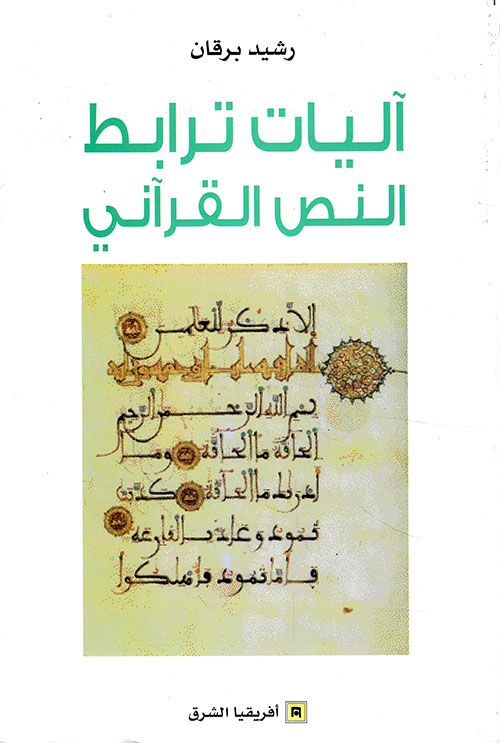 رشيد برقان
آليات ترابط
النص القرآني
إلا ذكر للعلمين
بسم الله الرحمن الرحيم
الحاقة ما الحاقة وما
أدريك ما الحاقة كذبت
ثمود وعاد بالقارعة
فأما ثمود فأهلكوا
أفريقيا الشرق